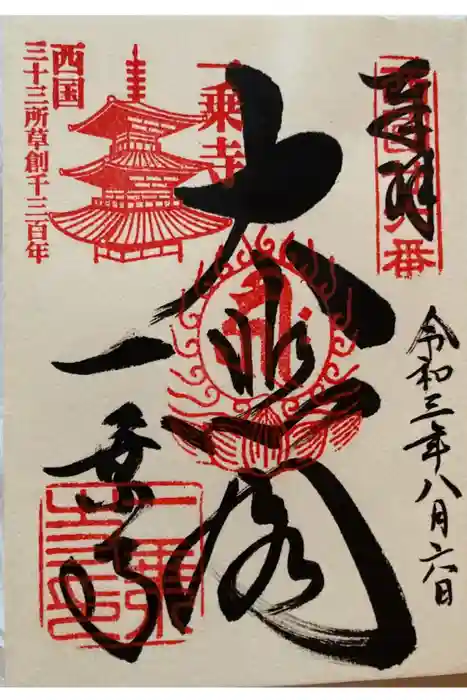 奉拝
番
令和三年八月六日
大悲閣
一乗寺
一乗寺
西国
三十三所草創千三百年